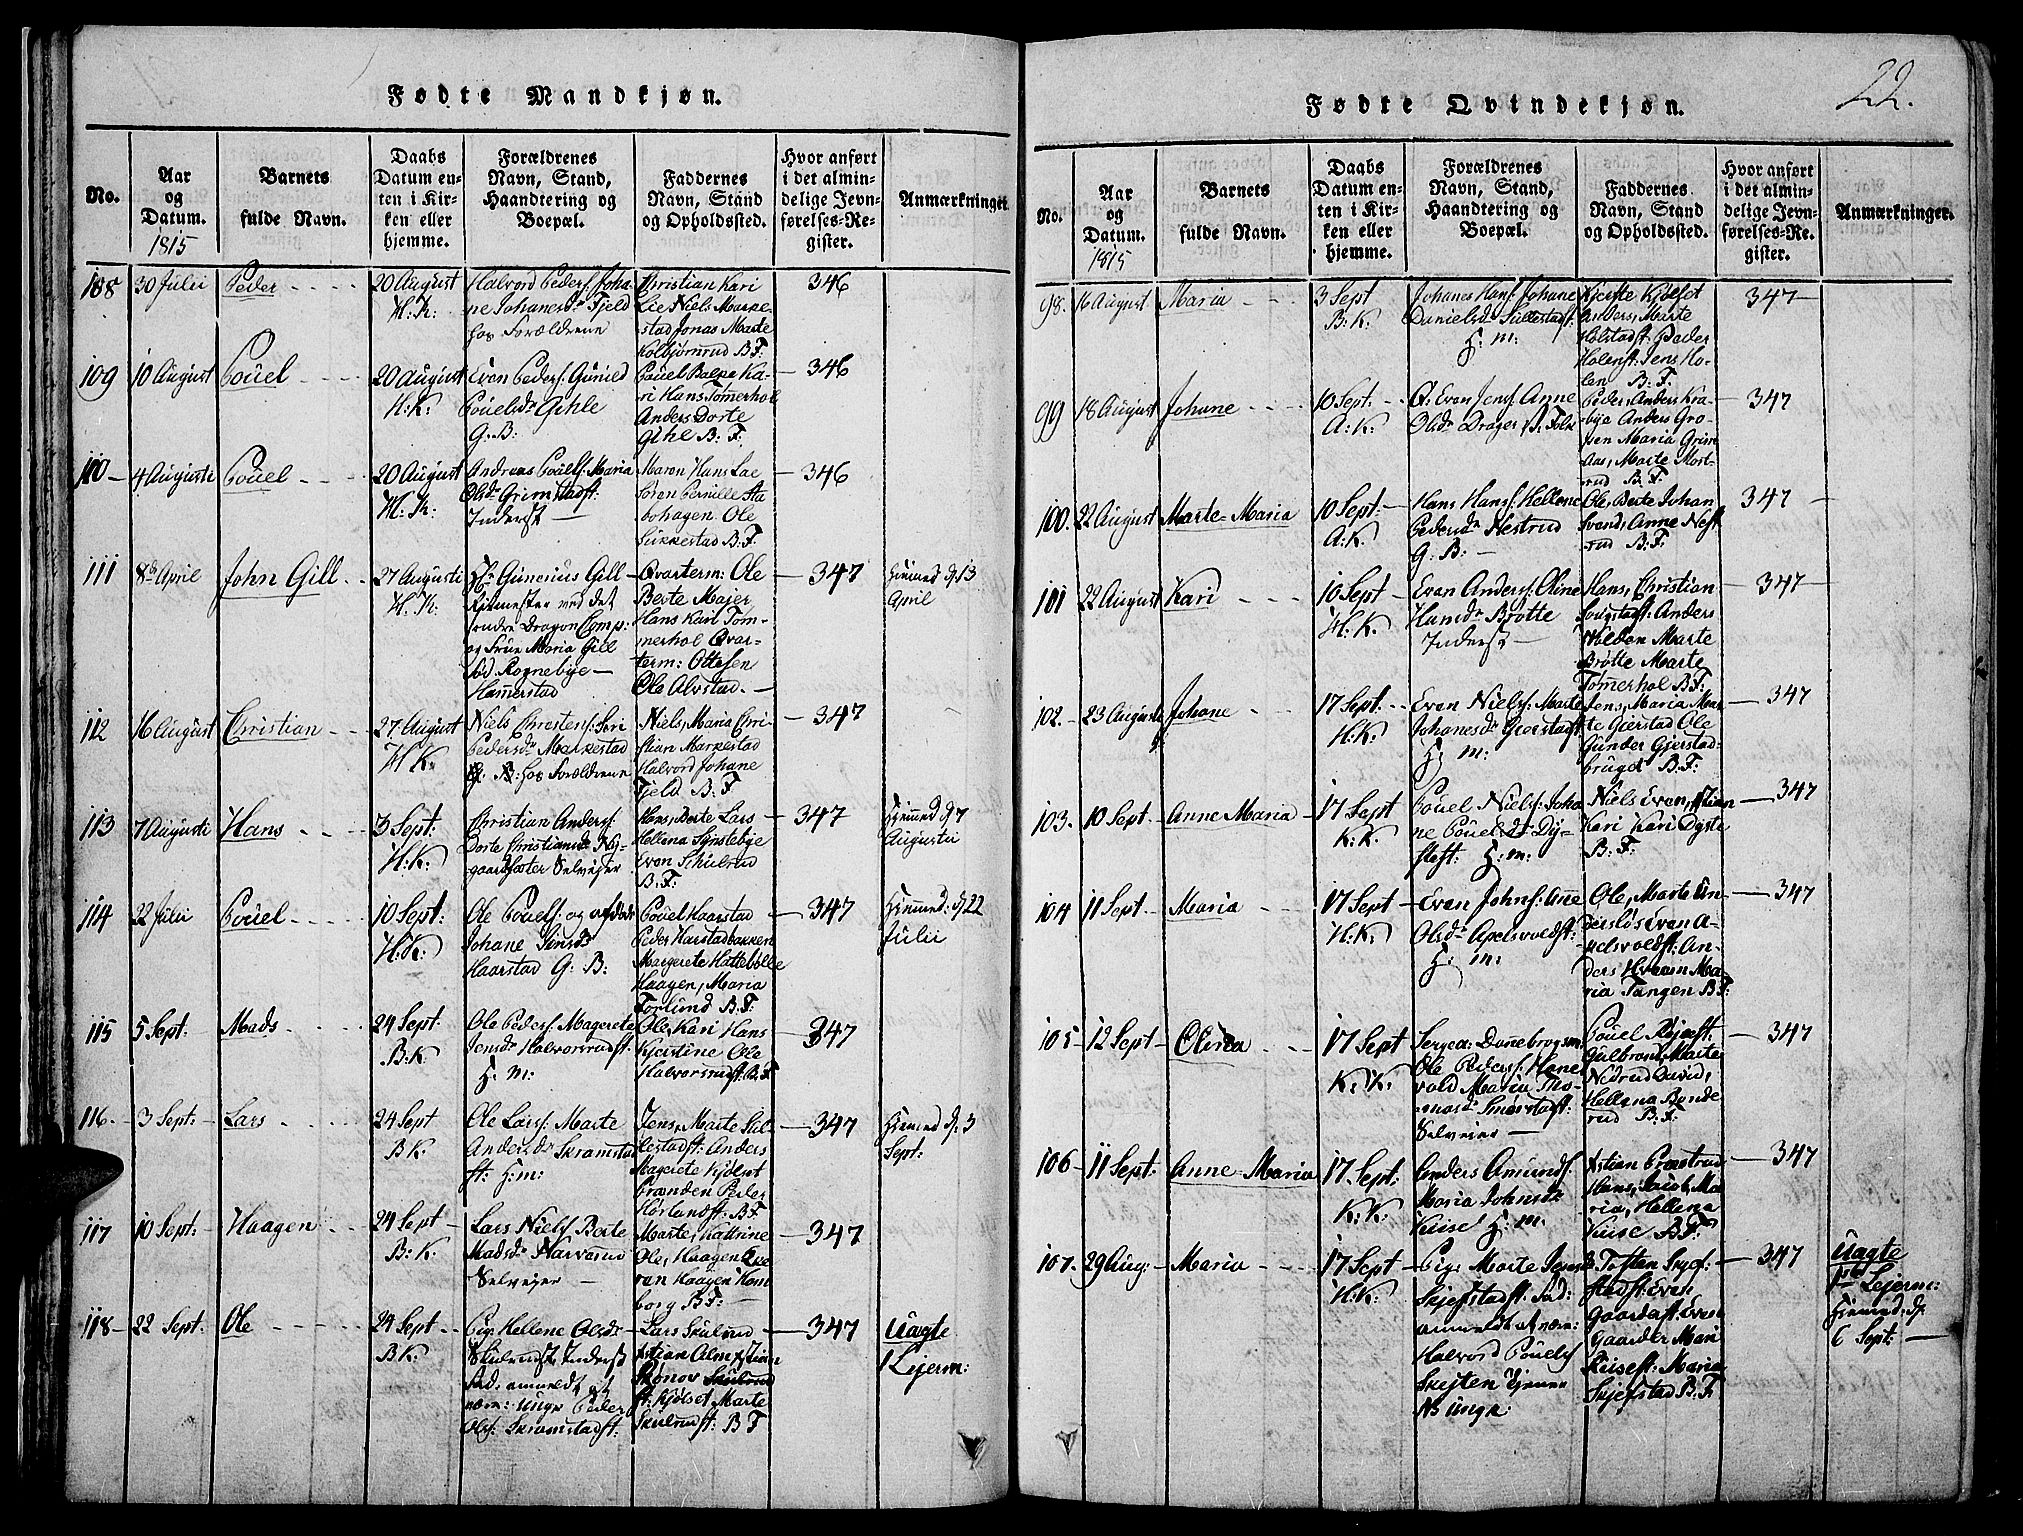 Fødte Mandkjøn.
No.
Aar
og
Datum.
1815
Barnets
fulde Navn.
Daabs
Datum en-
ten i Kir-
ken eller
hjemme.
Forældrenes
Navn, Stand,
Haandtering og
Boepæl.
Faddernes
Navn, Stand
og Opholdssted.
Hvor anført
i det almin-
delige Jevn-
førelses-Re-
gister.
Anmærkninger.
108
30 Julii
Peder
20 August
H: K:
Halvord Peders: Joha-
ne Johanesdr Fjeld
hos Forældrene
Christian Kari
Lie Niels Marke-
stad Jonas Marte
Kolbjørnrud B F:
346
109
10 August
Pouel
20 August
H: K:
Even Peders: Gunild
Pouelsdr Gihle
G. B:
Pouel Balke Ka-
ri Hans Tømerhol
Anders Dorte
Gihl B: F:
346
110
4 Augusti
Pouel
20 August
H: K:
Andreas Pouels: Maria
Olsdr Grimstadf:
Inderst
Maron Hans Lae
Søren Pernille Sta-
bohagen Ole
Sukkestad B: F:
346
111
8de April
John Gill
27 Augusti
H: K:
Hr Gunerius Gill
Ritmester ved det
søndre Dragon Comp:
og Frue Maria Gill
fød Rognebye
Hamerstad
Qvarterm: Ole
Berte Majer
Hans Kari Tøm-
merhol Qvar-
term: Ottesen
Ole Alvstad.
347
Hiemed d: 13
April
112
16 August
Christian
27 August
H K:
Niels Christens: Siri
Pedersdr Markestad
G: B: hos Forældrene
Niels, Maria Chri-
stian Markestad
Halvord Johane
Fjeld B: F
347
113
7 Augusti
Hans
3 Sept:
H: K:
Christian Anders:
Dorte Christiansdr Ny-
gaard Selveyer
Hans Berte Lars
Hellena
Even Schulrud
B: F:
347
Hiemed d: 7
Augustii
114
22 Julii
Pouel
10 Sept:
H: K:
Ole Pouels: og afdøde
Johane Simsdr
Haarstad G: B:
Pouel Haarstad
Peder Harstadbakken
Margrete Hattebølle
Haagen, Maria
Torlund B: F:
347
Hiemed: d: 22
Julii
115
5 Sept:
Mads
24 Sept
B: K
Ole Peders: Magrete
Jensdr Halvorsrudf:
H: m:
Ole, Kari Hans
Kjerstine Ole
Halvorsrudf: B: F
347
116.
3 Sept:
Lars
24 Sept
B K:
Ole Lars: Marte
Andersdr Skramstad
f: H: m:
Jens, Marte Sil-
lestadf: Anders
Magrete Kjølset
Brænden Peder
Hørlandf: B: F
347
Hiemed d: 3
Sept:
117
10 Sept:
Haagen
24 Sept
B: K:
Lars Niels Berte
Madsdr Narverud
Selveyer
Marte, Kattrine
Ole, Haagen Lee
ran Haagen Kom
borg B: F:
347
118
22 Sept:
Ole
24 Sept
B K:
Pig: Hellene Olsdr
Skulrudf: Inderst
Fad: anmeldt at
være: Ungk: Peder
Ols: Skramstadf:
Lars Skulrud
Kistian Alm
Rønov Skulrud
f: Kjølset Marte
Skulrudf: B: F
347
Uægte
1 Lejerm:
22.
Fødte Qvindekjøn.
No.
Aar
og
Datum.
1815
Barnets
fulde Navn.
Daabs
Datum en-
ten i Kir-
ken eller
hjemme.
Forældrenes
Navn, Stand,
Haandtering og
Boepæl.
Faddernes
Navn, Stand
og Opholdssted.
Hvor anført
i det almin-
delige Jevn-
førelses-Re-
gister.
Anmærkninger.
98.
16 August
Maria
3 Sept
B: K:
Johanes Hans: Johane
Danielsdr Sillestadf:
H: m:
Kjerste Kjølset
Anders, Marte
Holstadf: Peder
Holenf: Jens Ho-
len B: F:
347
99
18 August
Johane
10 Sept:
A: K:
Even Jens: Anne
Olsdr Drager
Peder, Anders Kra-
bye Anders Gro-
ven Maria Grim
aas, Marte Most-
rud B: F:
347
100.
22 August
Marte-Maria
10 Sept:
A: K:
Hans Hans: Hellene
Pedersdr Nestrud
G: B:
Ole, Berte Johan
Svend, Anne Nest
rud B: F:
347
101
22 August
Kari
10 Sept
H: K:
Even Anders: Oline
Hansdr Brøtte
Inderst
Hans, Christian
Sougstadf: Anders
Vilden Marte
Brøtte Marte
Tømerhol B: F:
347
102.
23 August
Johane
17 Sept:
H: K:
Even Niels: Marte
Johanesdr Gierstadf:
H: m:
Jens, Maria Mar-
te Gierstad Ole
Gunder Gjerstad-
bruget B: F:
347
103.
10 Sept:
Anne Maria
17 Sept
K: K:
Pouel Niels: Joha
ne Pouelsdr Dy-
stef: H: m:
Niels Even, Kistian
Kari Kari Dyste
B: F:
347
104
11 Sept:
Maria
17 Sept
H: K:
Even Johns: Anne
Olsdr Apelsvoldf:
H: m:
Ole, Marte An-
dersløs Even A-
pelsvoldf: An-
ders Hveem Ma-
ria Tangen B: F:
347
105
12 Sept
Olinea
17 Sept
K: K:
Sergea: Danebrogsm
Ole Peders: Hene
vold Maria Tho-
masdr Smørstadf:
Selveier
Pouel
Gulbrand, Marte
Nedrud David,
Hellena Bonde
rud B: F:
347
106
11 Sept:
Anne-Maria
17 Sept:
K: K:
Anders Amunds:
Maria Johnsdr
Kuse H: m:
Kistian Præstrud
Hans, Jacob, Ma
ria, Hellena
Kuise B: F:
347
107.
29 Aug:
Maria
17 Sept
H: K:
Pig: Marte Jensdr
Skjefstadf: Fad:
anmeldt at være:
Halvord Pouels
Skejten
NB Ungk:
Tosten Skjef:
stadf: Even
Gaardsf: Even
Gaarder Mari
Kuisef: Maria
Skjefstad B: F
347
Uægte
1ste Lejerm:
Hiemed: d:
6 Sept: